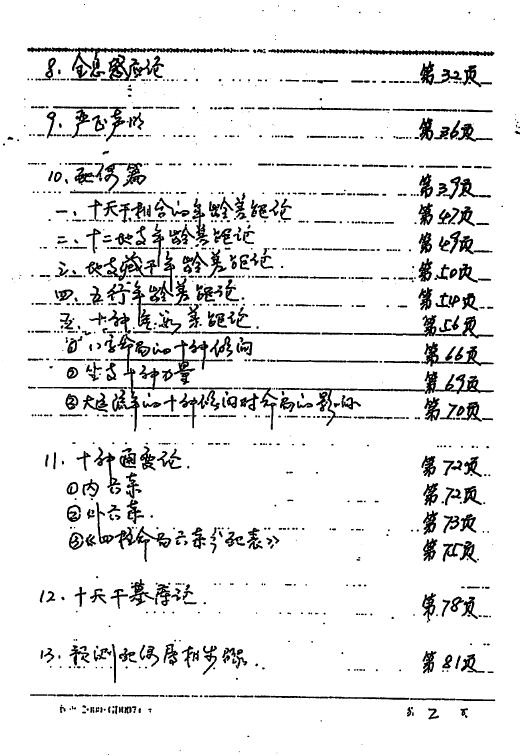 8、全息感应论 第32页
9、严正声明 第36页
10、配偶篇 第39页
一、十天干相合的年龄差距论 第47页
二、十二地支年龄差距论 第49页
三、地支藏干年龄差距论. 第50页
四、五行年龄差距论. 第54页
五、十神 差距论. 第56页
八字命局的十神 第66页
②坐支十神力量 第69页
③大运流年的十神 对命局的影响 第70页
11、十神通变论. 第72页
①内六亲 第72页
②外六亲. 第73页
③《四柱命局六亲分配表》 第75页
12、十天干墓库论. 第78页
13、预测配偶 相步骤. 第81页
第 2 页